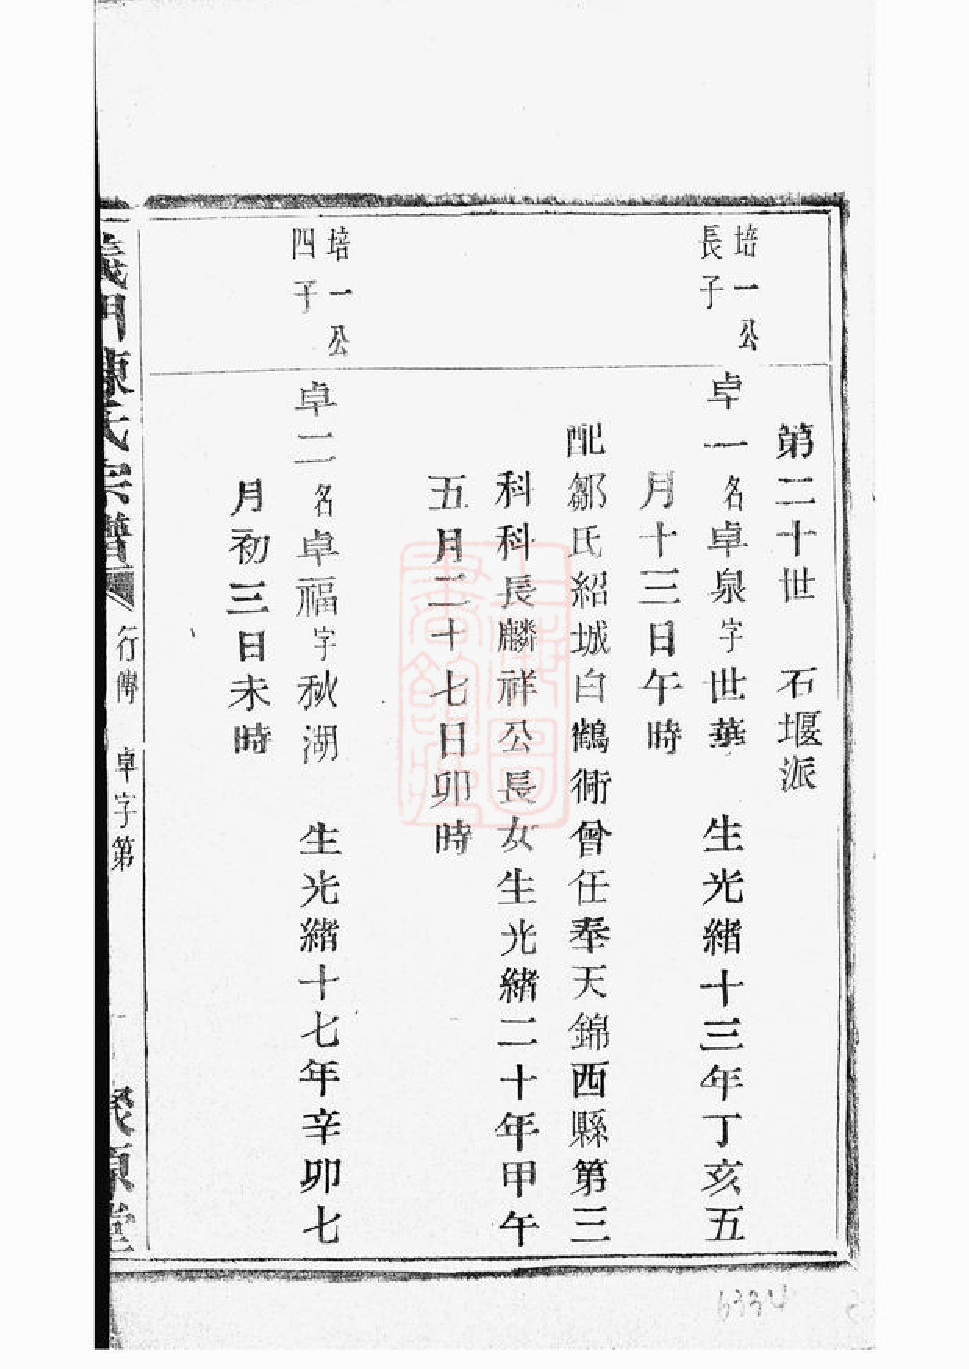 第二十世　石堰派
培一公
長子
卓一名卓泉字世華　生光緒十三年丁亥五
月十三日午時
配鄒氏紹城白鶴衖曾任奉天錦西縣第三
科科長麟祥公長女生光緒二十年甲午
五月二十七日卯時
培一公
四子
卓二名卓福字秋湖　生光緒十七年辛卯七
月初三日未時
義門陳氏宗譜
行傳　卓字第
聚原堂
6334